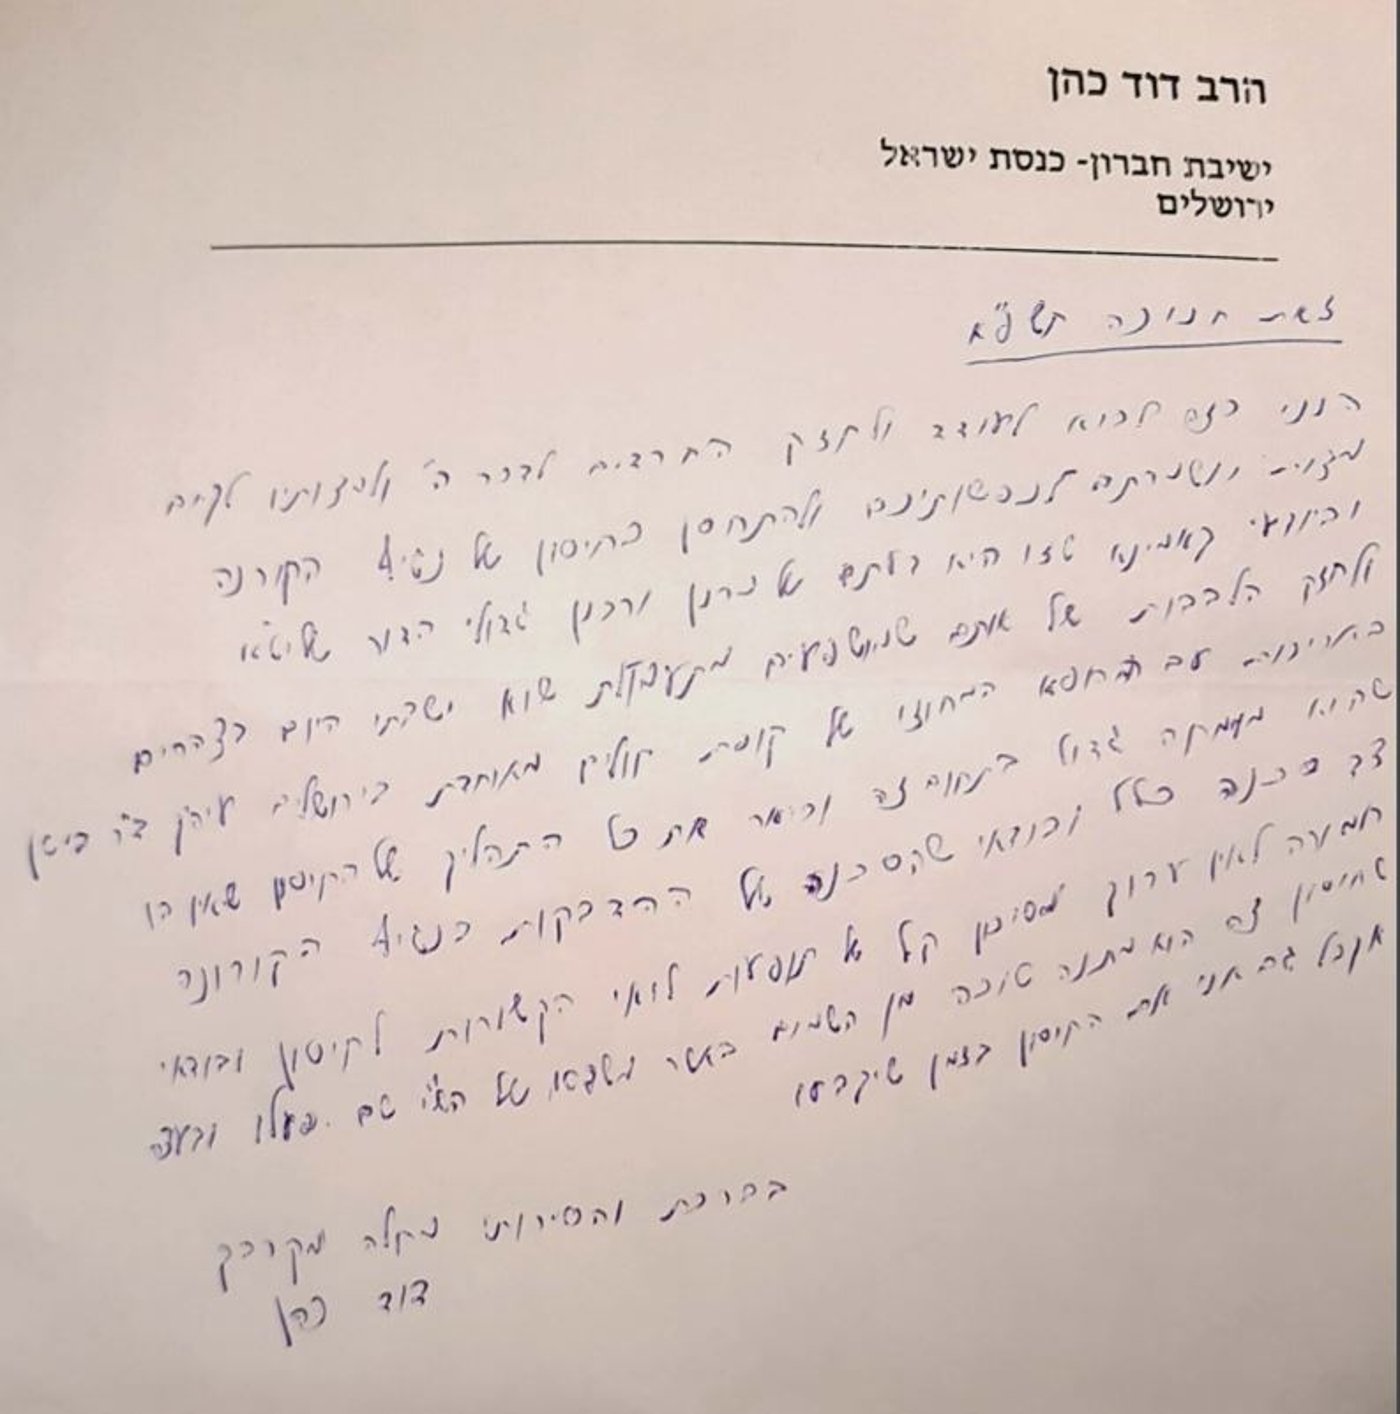 הרב דוד כהן
ישיבת חברון- כנסת ישראל
ירושלים
זאת חנוכה תשפ"א
הנני בזה לבוא לעודד ולחזק החרדים לדבר ה' ולמצותיו לקיים
מצות ונשמרתם לנפשותיכם ולהתחסן בחיסון של נגיף הקורנה
וביודעי קאמינא שזו היא דעתם של מרנן ורבנן גדולי הדור שליט"א
ולחזק הלבבות של אותם שמושפעים מתעמולת שוא ישבתי היום בצהרים
באריכות עם הרופא המחוזי של קופת חולים מאוחדת בירושלים עיה"ק ד"ר
שהוא מומחה גדול בתחום זה וביאר את כל התהליך של החיסון שאין בו
צד סכנה כלל ובודאי שהסכנה של ההדבקות בנגיף הקורונה
חמורה לאין ערוך מסיכון קל של תופעות לואי הקשורות לחיסון ובודאי
שחיסון זה הוא מתנה טובה מן השמים באשר משבאו של הש"י שם פעלו ובעצמי
אקבל גם אני את החיסון בזמן שיקבעו
בברכת והסירותי מחלה מקרבך
דוד כהן